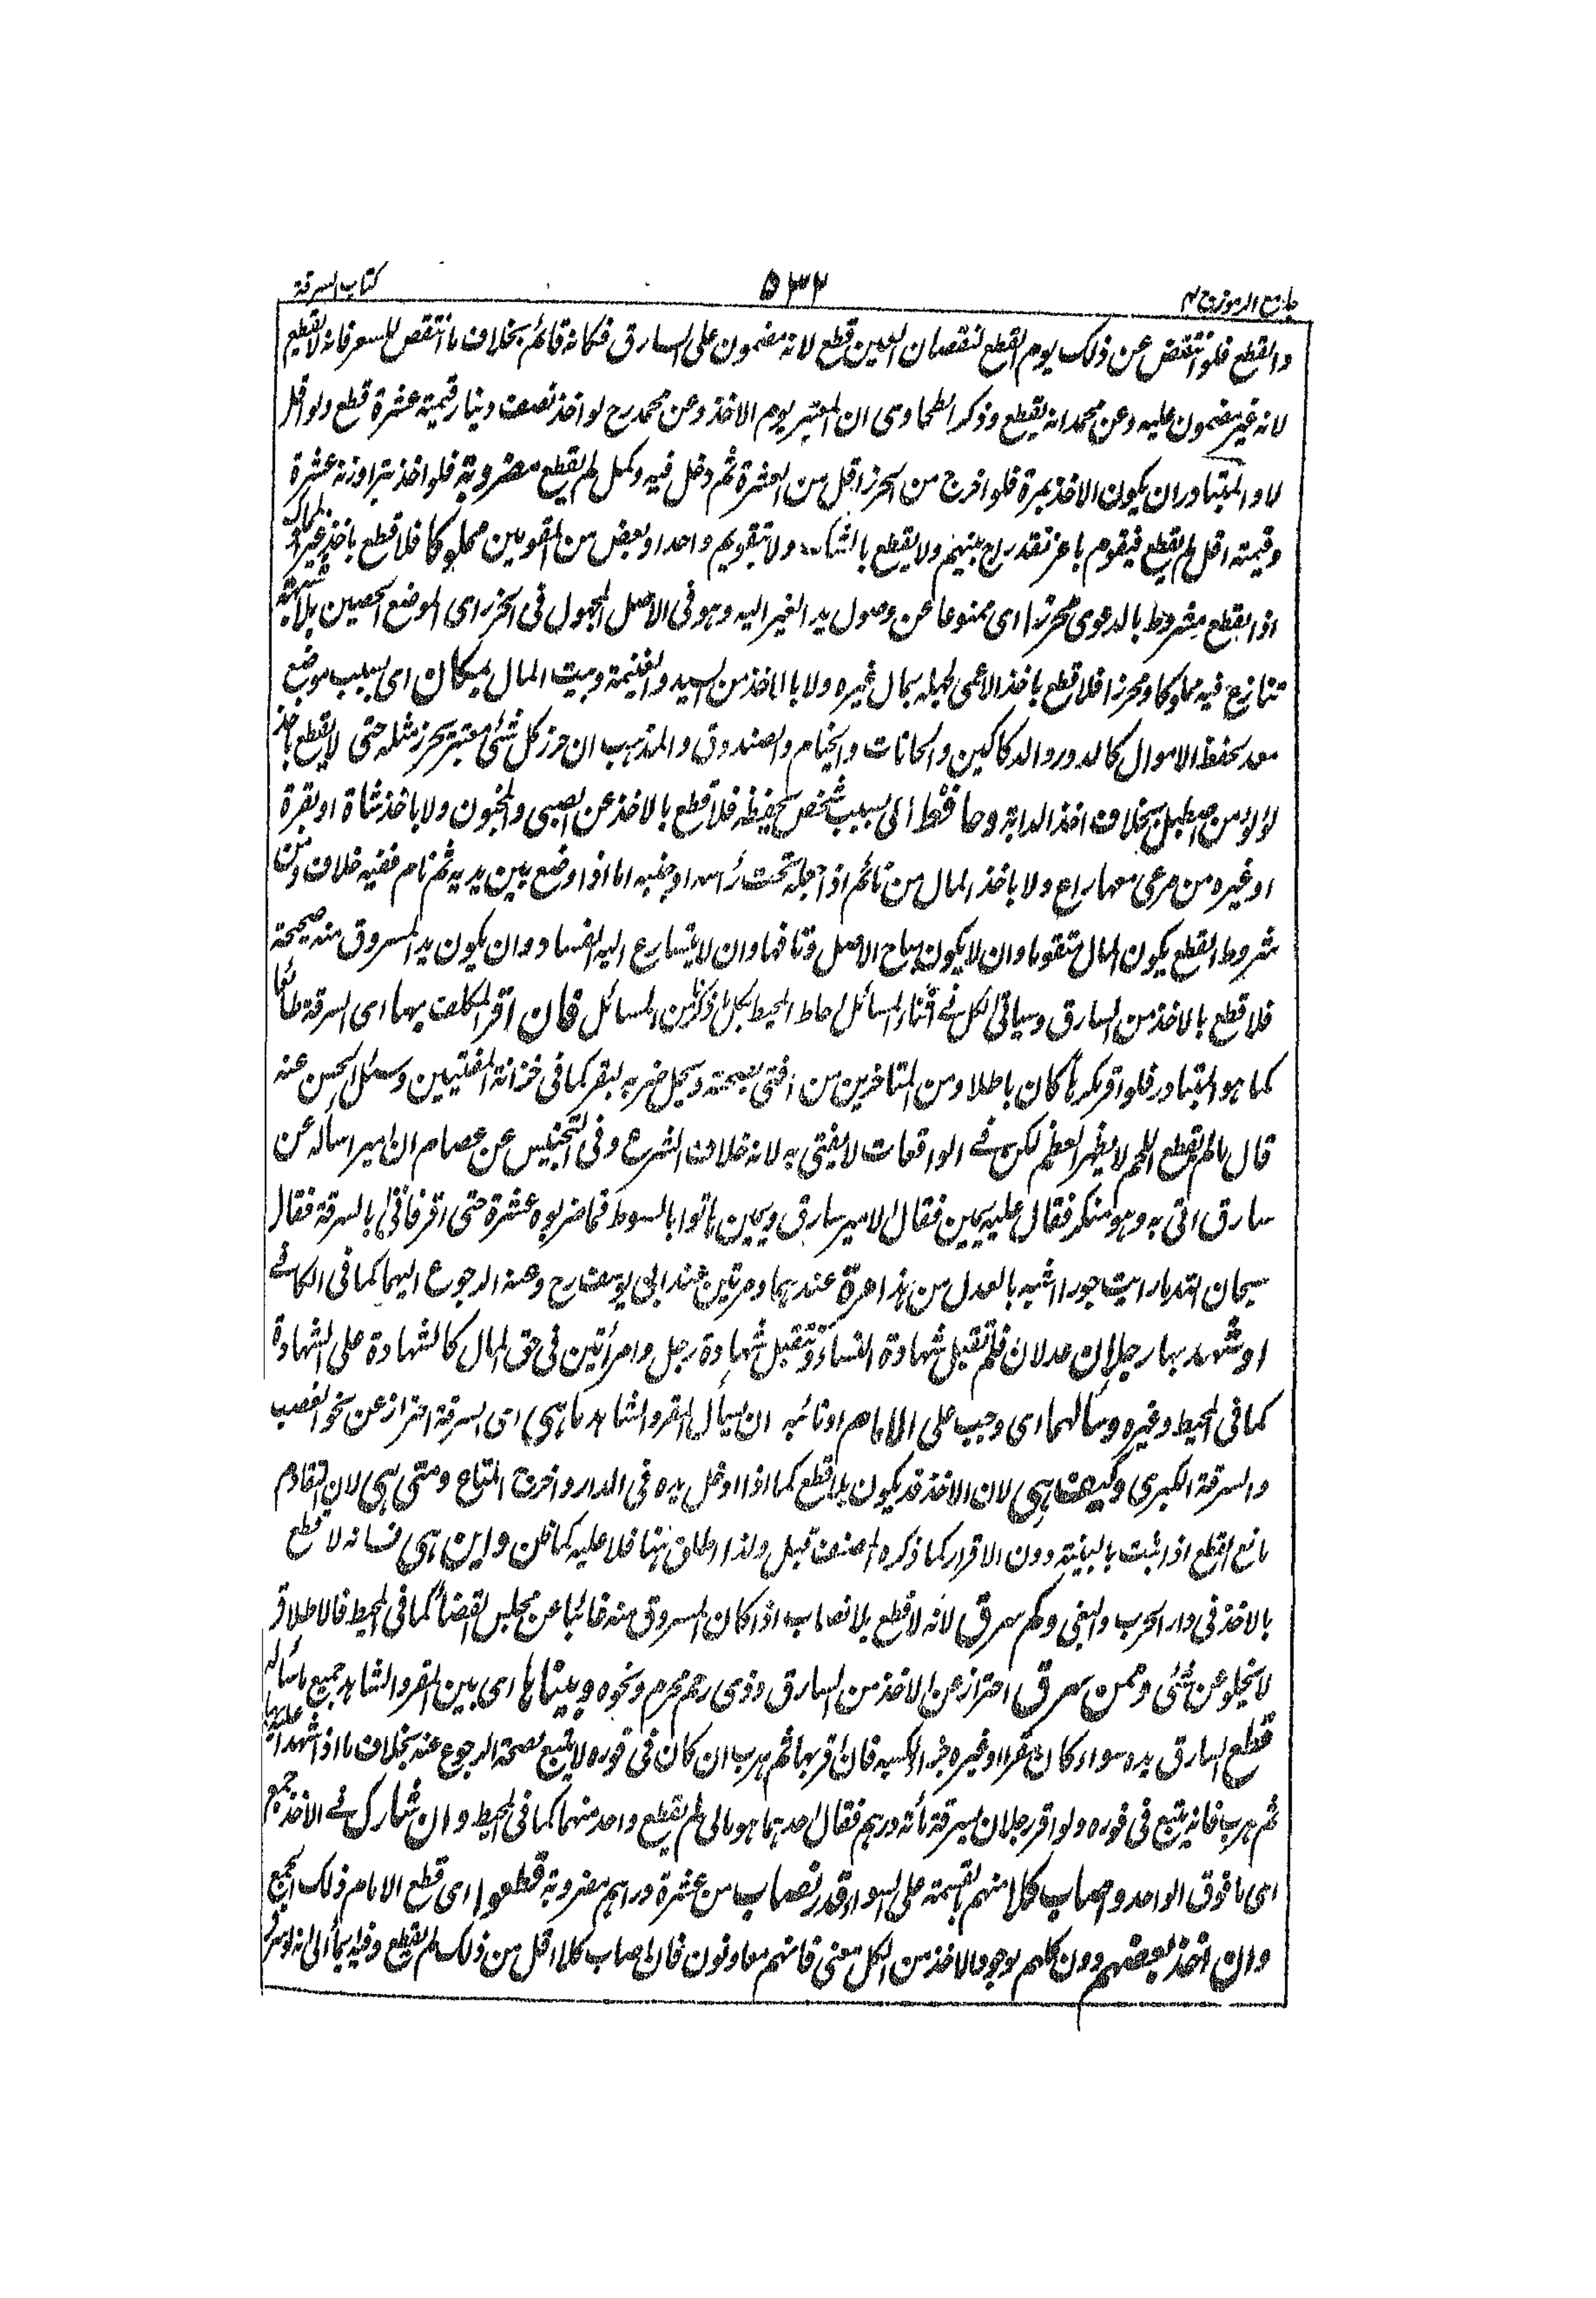 جامع الرموز ج ٢
٥٣٢
كتاب السرقة
والقطع فلو انتقض عن ذلك يوم القطع لنقصان العين قطع لانه مضمون على السارق فكانه قائم بخلاف ما انتقص للسعر فانه لا يقطع
لانه غير مضمون عليه وعن محمد انه يقطع وذكر الطحاوى ان المعتبر يوم الاخذ وعن محمد رح لو اخذ نصف دينار قيمته عشرة قطع ولو اقل
لا والمتبادر ان يكون الاخذ بمرة فلو اخرج من الحرز اقل من العشرة ثم دخل فيه وكمل لم يقطع مضروبة فلو اخذ تبرا وزنه عشرة
وقيمته اقل لم يقطع فيقوم باعز نقد رايج بينهم ولا يقطع بالشك ولا بتقويم واحد او بعض من المقومين مملوكا فلا قطع باخذ غير المملوك
اذ القطع مشروط بالدعوى محرزا اى ممنوعا عن وصول يد الغير اليه وهو فى الاصل المجهول فى الحرز اى الموضع الحصين بلا شبهة
تنازع فيه مملوكا ومحرزا فلا قطع باخذ الاعمى لجهله بمال غيره ولا بالاخذ من السيد والغنيمة وبيت المال بمكان اى بسبب موضع
معد لحفظ الاموال كالدور والدكاكين والحانات والخيام والصندوق والمذهب ان حرز كل شئ معتبر بحرز مثله حتى لا يقطع باخذ
لؤلؤ من اصطبل بخلاف اخذ الدابة وحافظ اى بسبب شخص يحفظه فلا قطع بالاخذ عن الصبى والمجنون ولا باخذ شاة او بقرة
او غيره من مرعى معها راع ولا باخذ المال من نائم اذا جعله تحت رأسه او جنبه اما اذا وضع بين يديه ثم نام ففيه خلاف ومن
شروط القطع يكون المال متقوما وان لا يكون مباح الاصل وتافها وان لا يتسارع اليه الفساد وان يكون يد المسروق منه صحيحة
فلا قطع بالاخذ من السارق وسياتى الكل فى اثناء المسائل احاط المحيط بكل ما ذكرنا من المسائل فان اقر المكلف بها اى السرقة طائعا
كما هو المتبادر فلو اقر مكرها كان باطلا ومن المتاخرين من افتى بصحته ويحل ضربه ليقر كما فى خزانة المفتيين وسئل الحسن عنه
قال ما لم يقطع اللحم لا يظهر العظم لكن فى الواقعات لا يفتى به لانه خلاف الشرع وفى التجنيس عن عصام ان امير اسأله عن
سارق اتى به وهو منكر فقال عليه يمين فقال الامير سارق ويمين هاتوا بالسوط فما ضربوه عشرة حتى اقر فاتى بالسرقة فقال
سبحان الله ما رايت جورا اشبه بالعدل من هذا مرة عندهما ومرتين عند ابى يوسف رح وعنه الرجوع اليهما كما فى الكافى
او شهد بها رجلان عدلان فلم تقبل شهادة النساء وتقبل شهادة رجل وامرأتين فى حق المال كالشهادة على الشهادة
كما فى المحيط وغيره وسألهما اى وجب على الامام او نائبه ان يسأل المقر والشاهد ما هى اى السرقة احتراز عن نحو الغصب
والسرقة الكبرى وكيف هى لان الاخذ قد يكون بلا قطع كما اذا ادخل يده فى الدار واخرج المتاع ومتى هى لان التقادم
مانع القطع اذا ثبت بالبينة دون الاقرار كما ذكره المصنف قبل ولذا اطلق ههنا فلا عليه كما ظن واين هى فانه لا قطع
بالاخذ فى دار الحرب والبغى وكم سرق لانه لا قطع بلا نصاب اذا كان المسروق منه غائبا عن مجلس القضاء كما فى المحيط فالاطلاق
لا يخلو عن شئ وممن سرق احتراز عن الاخذ من السارق وذى رحم محرم ونحوه وبيناها اى بين المقر والشاهد جميع ما سأله
قطع السارق يده سواء كان مقرا او غيره جزاء لكسبه فان اقر بها ثم هرب ان كان فى فوره لا يتبع لصحة الرجوع عنه بخلاف ما اذا شهدا عليه بها
ثم هرب فانه يتبع فى فوره ولو اقر رجلان بسرقة مائة درهم فقال احدهما هو مالى لم يقطع واحد منهما كما فى المحيط وان شارك فى الاخذ جمع
اى ما فوق الواحد واصاب كلا منهم بالقسمة على السواء قدر نصاب من عشرة دراهم مضروبة قطعوا اى قطع الامام ذلك الجمع
وان اخذ بعضهم دون كلهم لوجود الاخذ من الكل معنى فانهم معاونون فان اصاب كلا اقل من ذلك لم يقطع وفيه ايماء الى انه لو سرق